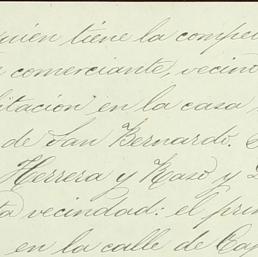 quien tiene la compe
comerciante, vecin
itacion en la casa
de San Bernardo.
Herrera y Raso y
ta vecindad: el prin
en la calle de Cap